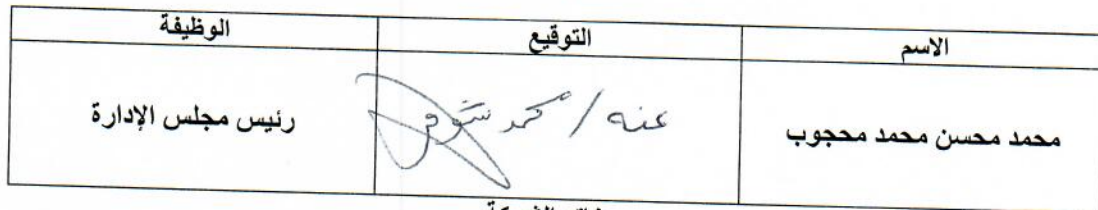 الاسم التوقيع الوظيفة
محمد محسن محمد محجوب عنه / محمد شوقي رئيس مجلس الإدارة